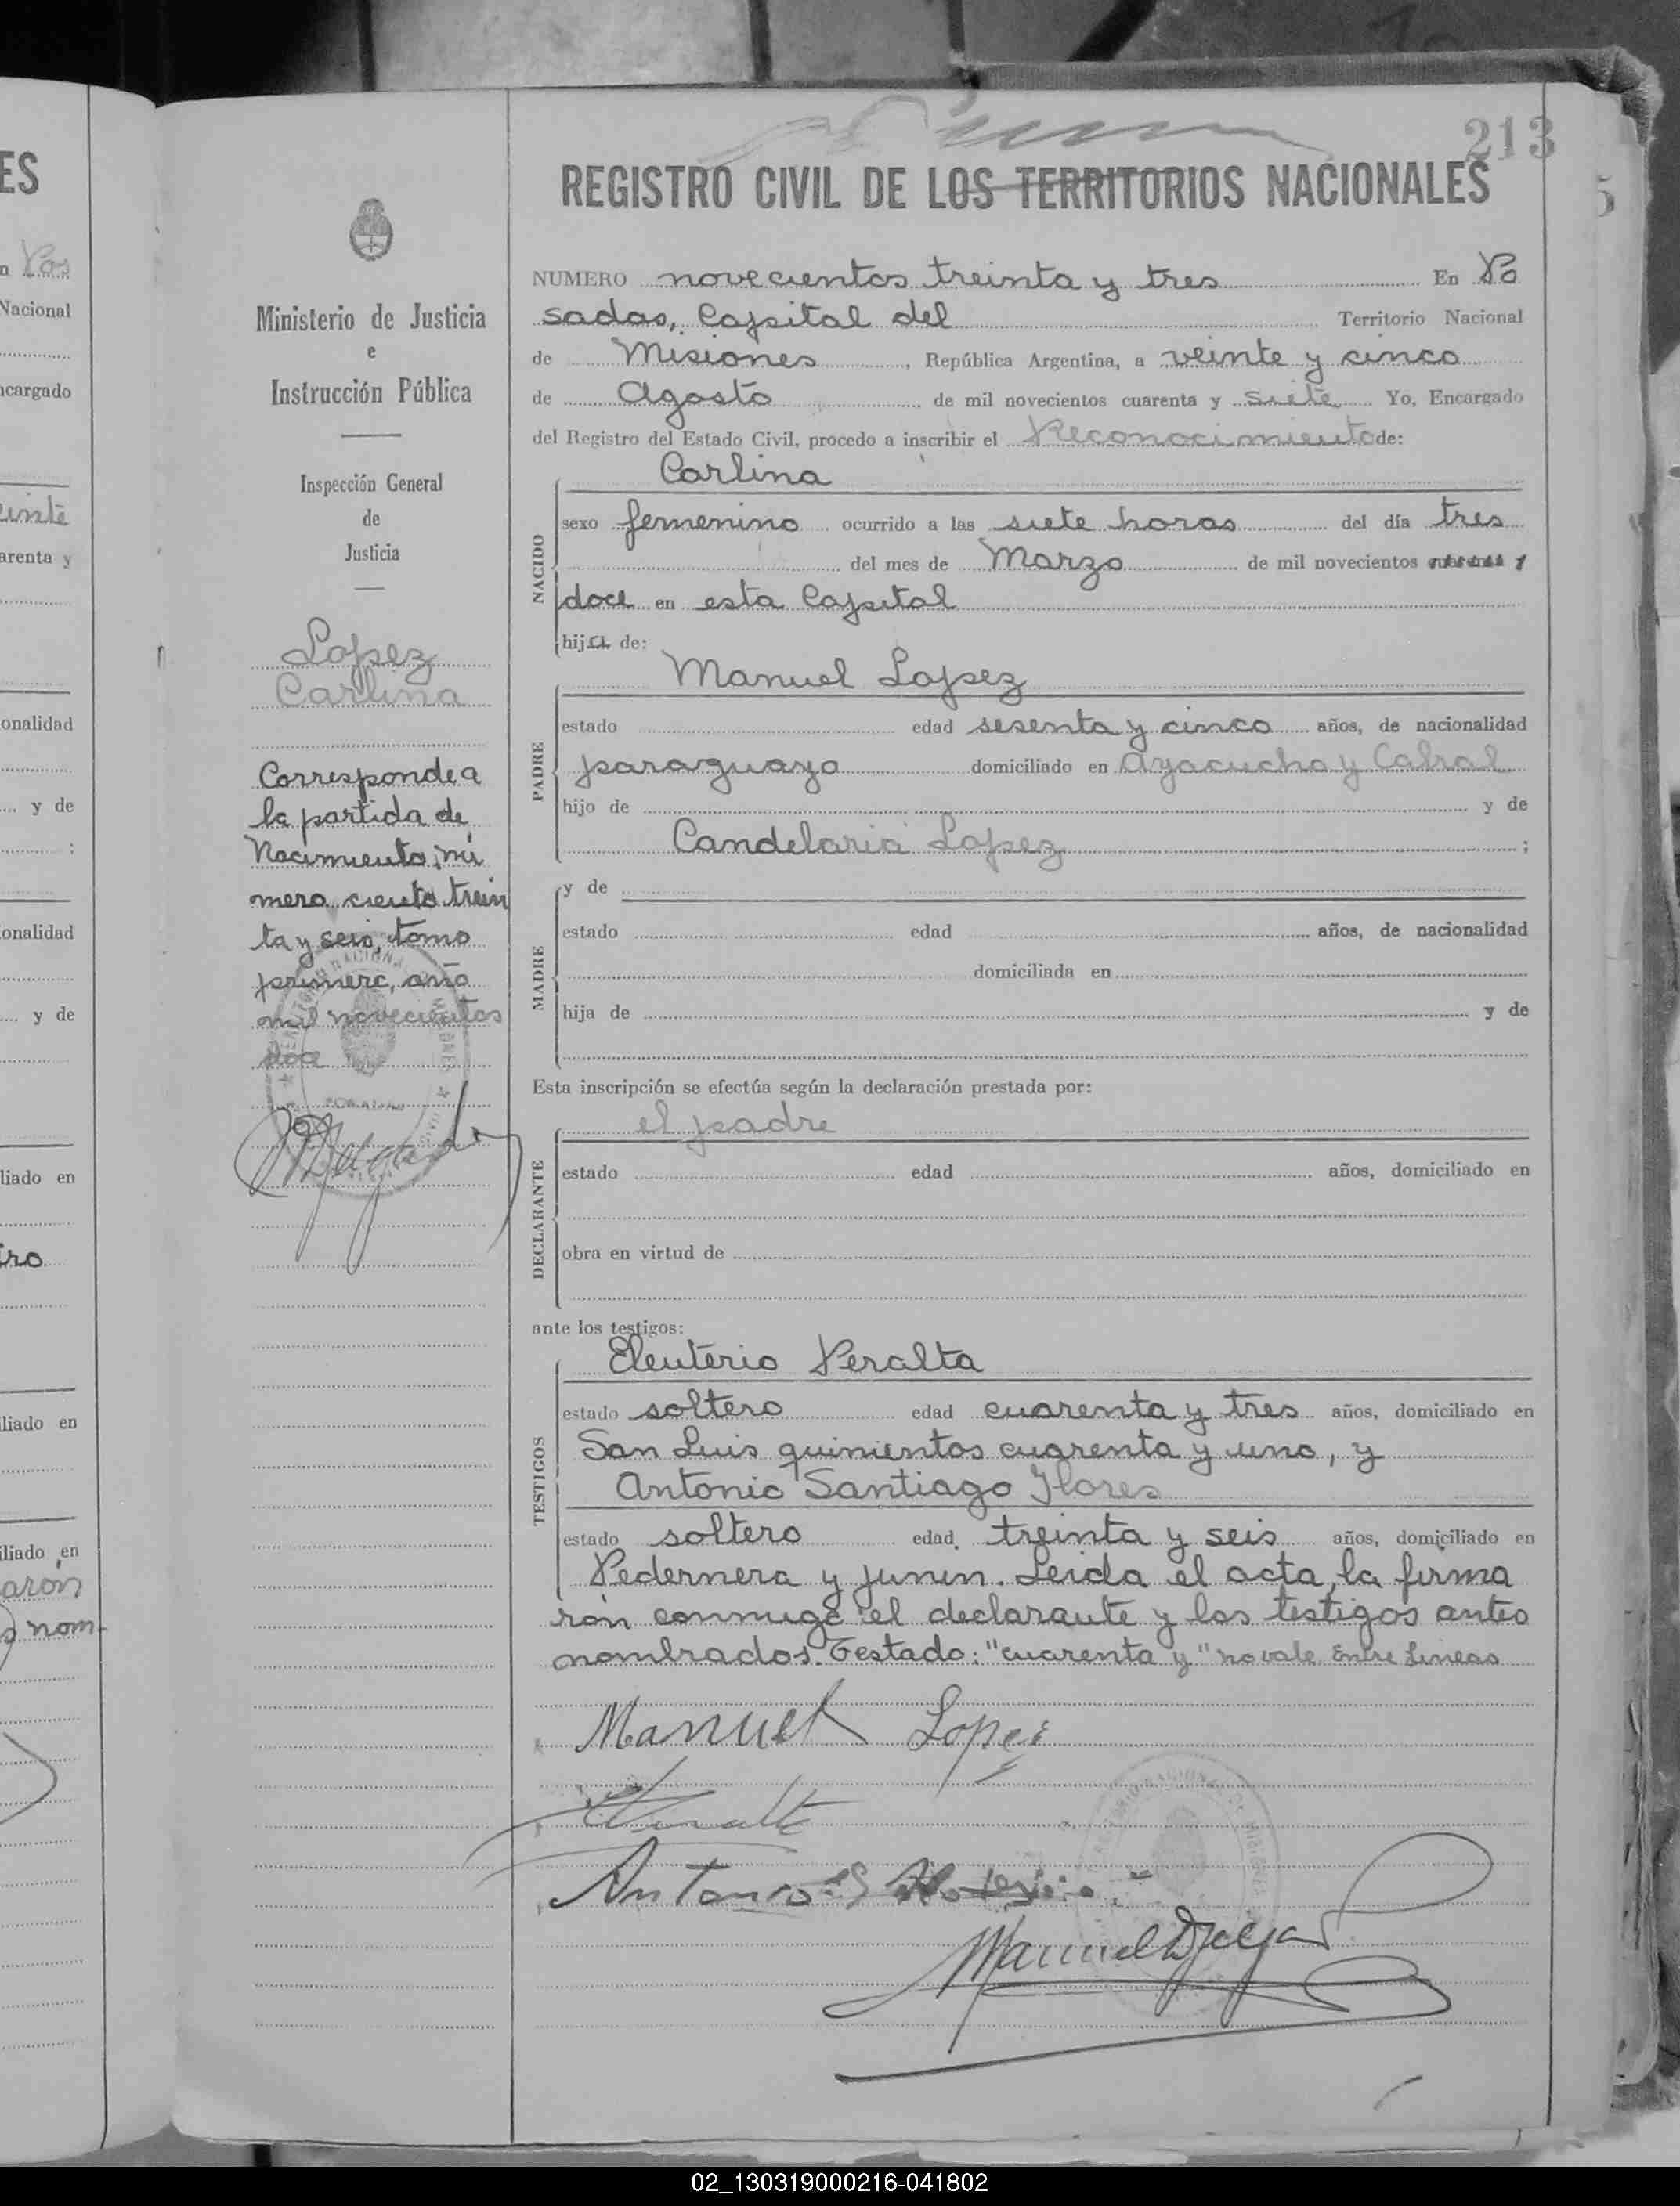 213
REGISTRO CIVIL DE LOS TERRITORIOS NACIONALES
NUMERO novecientos treinta y tres En Po
sadas, Capital del Territorio Nacional
de Misiones, República Argentina, a veinte y cinco
de Agosto de mil novecientos cuarenta y siete Yo, Encargado
del Registro del Estado Civil, procedo a inscribir el Reconocimiento de:
NACIDO
Carlina
sexo femenino ocurrido a las siete horas del día tres
del mes de Marzo de mil novecientos cuarenta y
doce en esta Capital
hija de:
PADRE
Manuel Lopez
estado edad sesenta y cinco años, de nacionalidad
paraguayo domiciliado en Ayacucho y Cabral
hijo de y de
Candelaria Lopez ;
MADRE
y de
estado edad años, de nacionalidad
domiciliada en
hija de y de
Esta inscripción se efectúa según la declaración prestada por:
DECLARANTE
el padre
estado edad años, domiciliado en
obra en virtud de
ante los testigos:
TESTIGOS
Eleuterio Peralta
estado soltero edad cuarenta y tres años, domiciliado en
San Luis quinientos cuarenta y uno, y
Antonio Santiago Flores
estado soltero edad treinta y seis años, domiciliado en
Pedernera y Junin. Leida el acta, la firma
rón conmigo el declarante y los testigos antes
nombrados. Testado: "cuarenta y" no vale Entre Lineas
Manuel Lopez
Ministerio de Justicia
e
Instrucción Pública
Inspección General
de
Justicia
Lopez
Carlina
Corresponde a
la partida de
Nacimiento, nú
mero ciento trein
ta y seis, tomo
primero, año
mil novecientos
doce
ES
n Pos
Nacional
ncargado
einte
arenta y
onalidad
y de
;
onalidad
y de
liado en
iro
liado en
iliado en
aron
s nom-
02_130319000216-041802